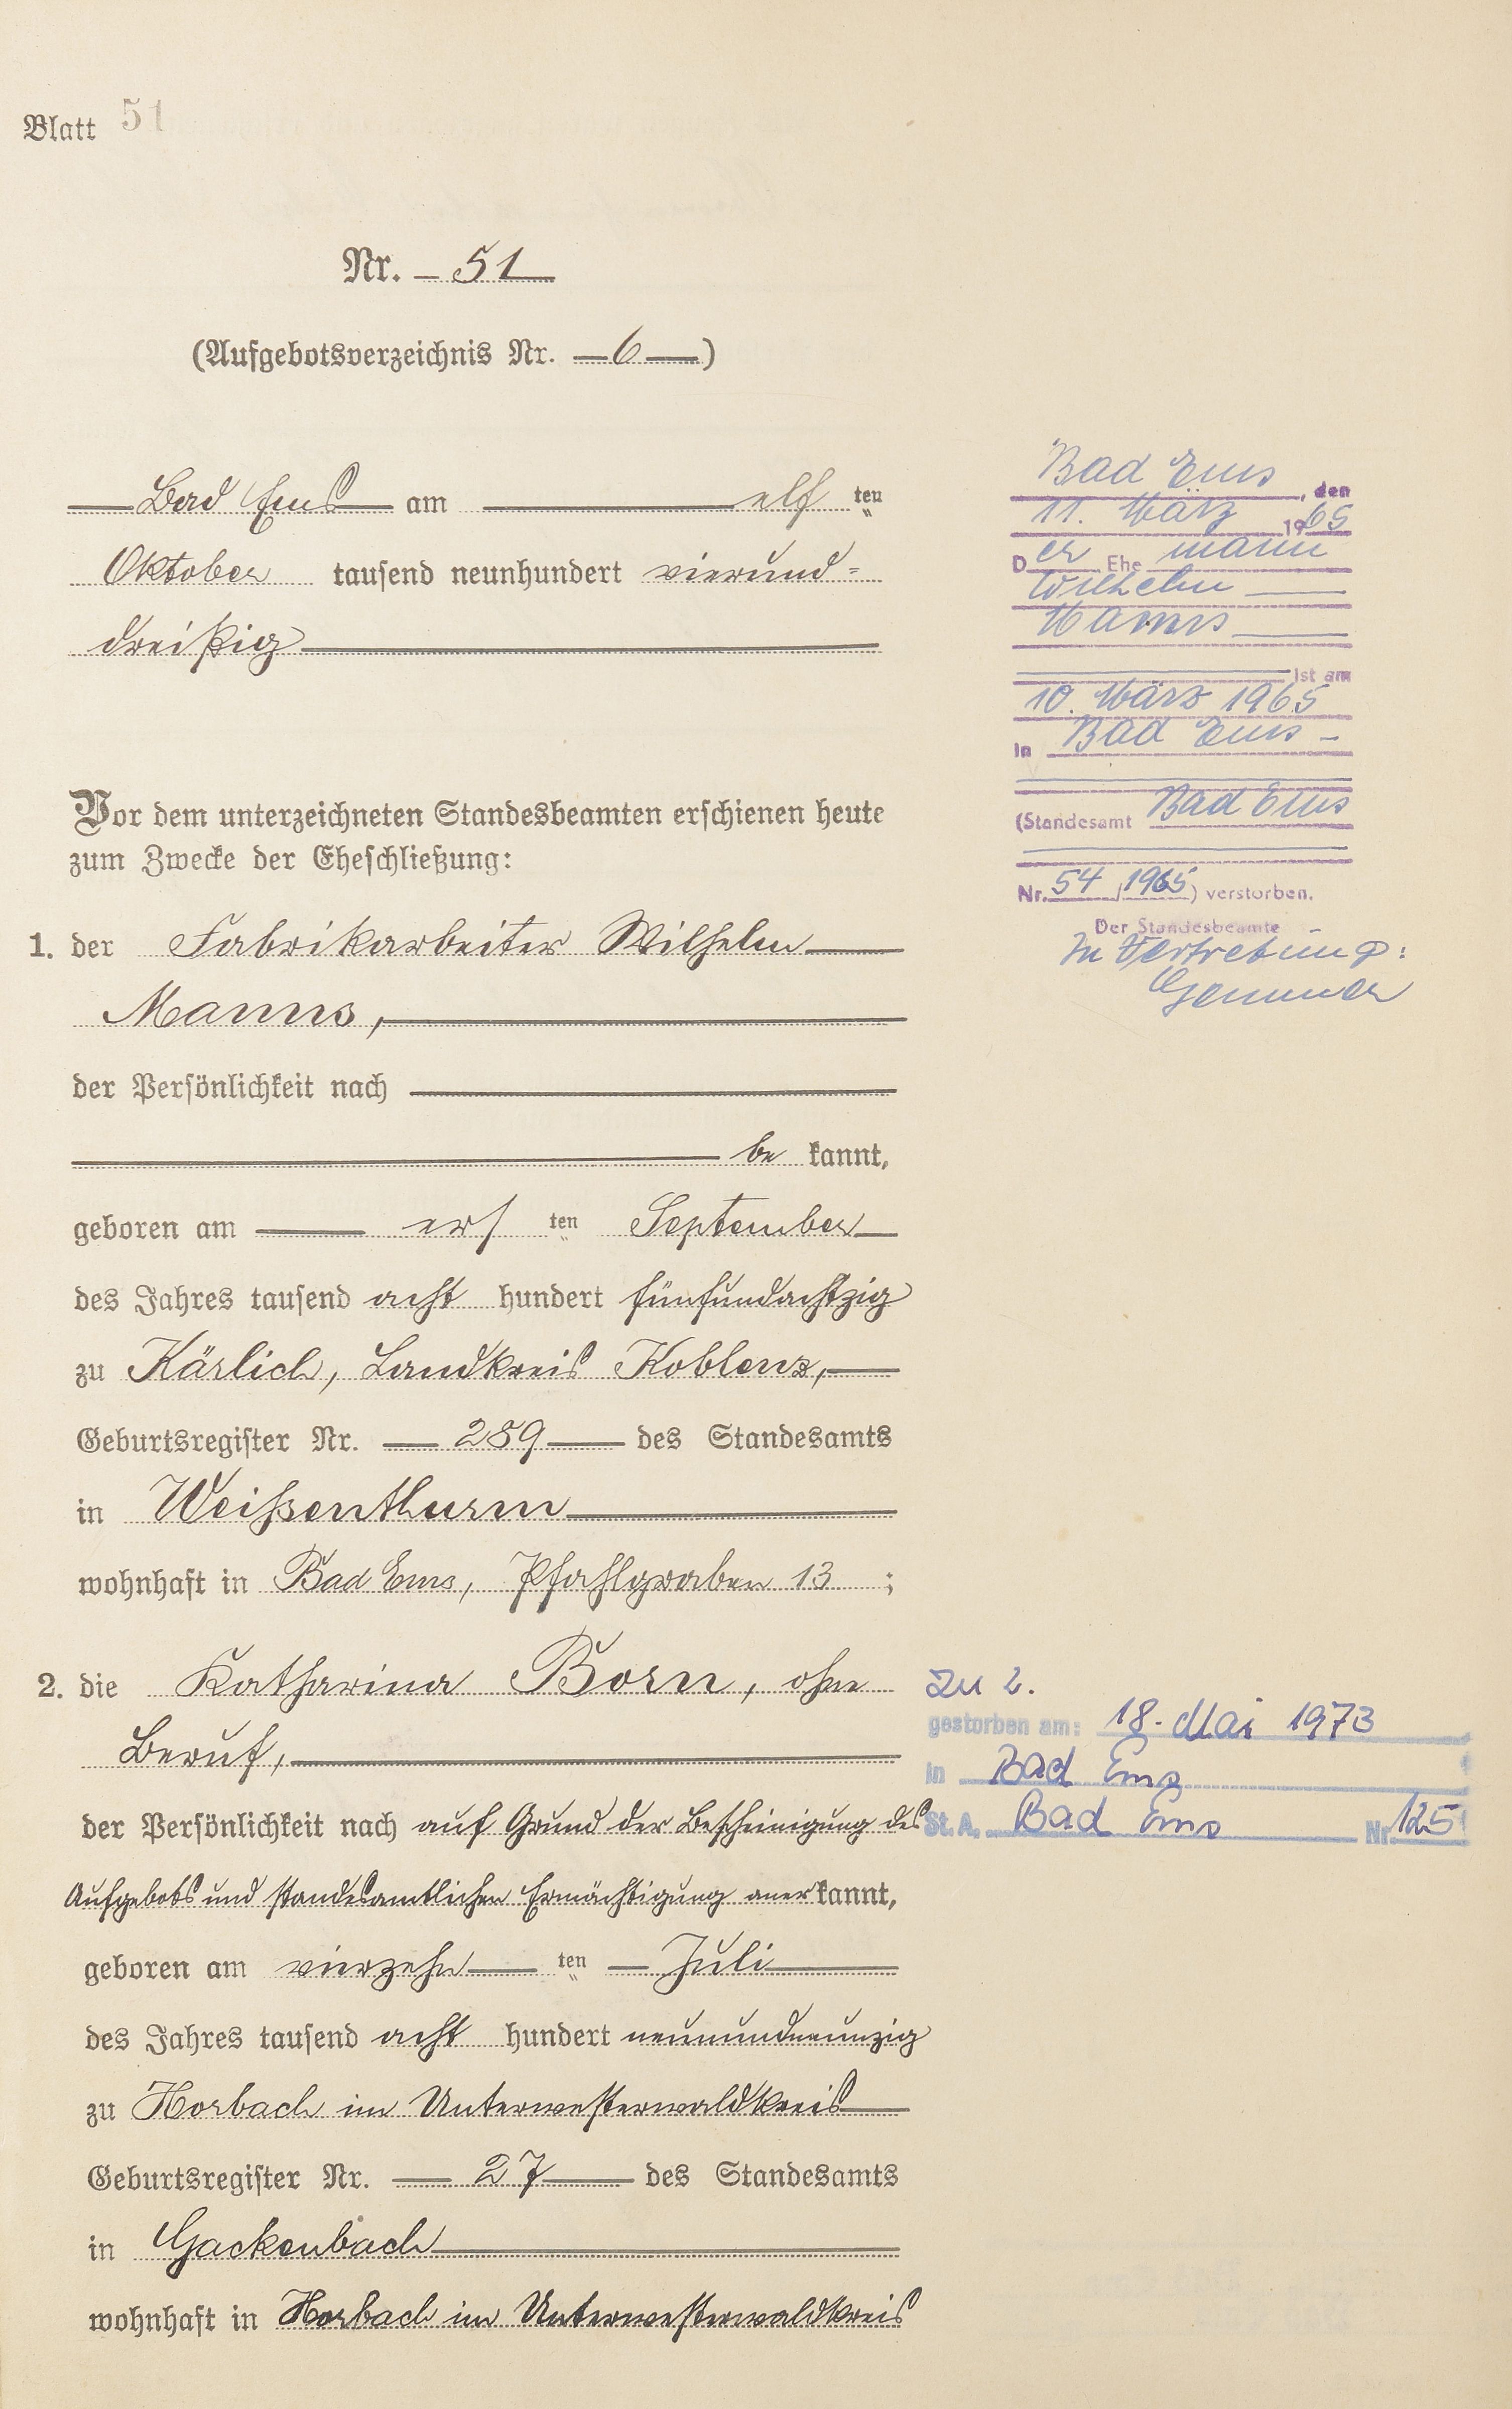 Blatt 51
Nr. 51
(Aufgebotsverzeichnis Nr. 6)
Bad Ems am elf ten
Oktober tausend neunhundert vierund=
dreißig
Vor dem unterzeichneten Standesbeamten erschienen heute
zum Zwecke der Eheschließung:
1. der Fabrikarbeiter Wilhelm
Manns,
der Persönlichkeit nach
be kannt,
geboren am ers ten September
des Jahres tausend acht hundert fünfundachtzig
zu Kärlich, Landkreis Koblenz,
Geburtsregister Nr. 289 des Standesamts
in Weißenthurm
wohnhaft in Bad Ems, Pfahlgraben 13 ;
2. die Katharina Born, ohne
Beruf,
der Persönlichkeit nach auf Grund der Bescheinigung des
Aufgebots und standesamtlichen Ermächtigung anerkannt,
geboren am vierzehn ten Juli
des Jahres tausend acht hundert neunundneunzig
zu Horbach im Unterwesterwaldkreis
Geburtsregister Nr. 27 des Standesamts
in Gackenbach
wohnhaft in Horbach im Unterwesterwaldkreis
Bad Ems, den
11. März 1965
Der Ehemann
Wilhelm
Manns
ist am
10. März 1965
in Bad Ems -
(Standesamt Bad Ems
Nr. 54/1965) verstorben.
Der Standesbeamte
In Vertretung:
zu 2.
gestorben am: 18. Mai 1973
in Bad Ems
St. A. Bad Ems Nr 125